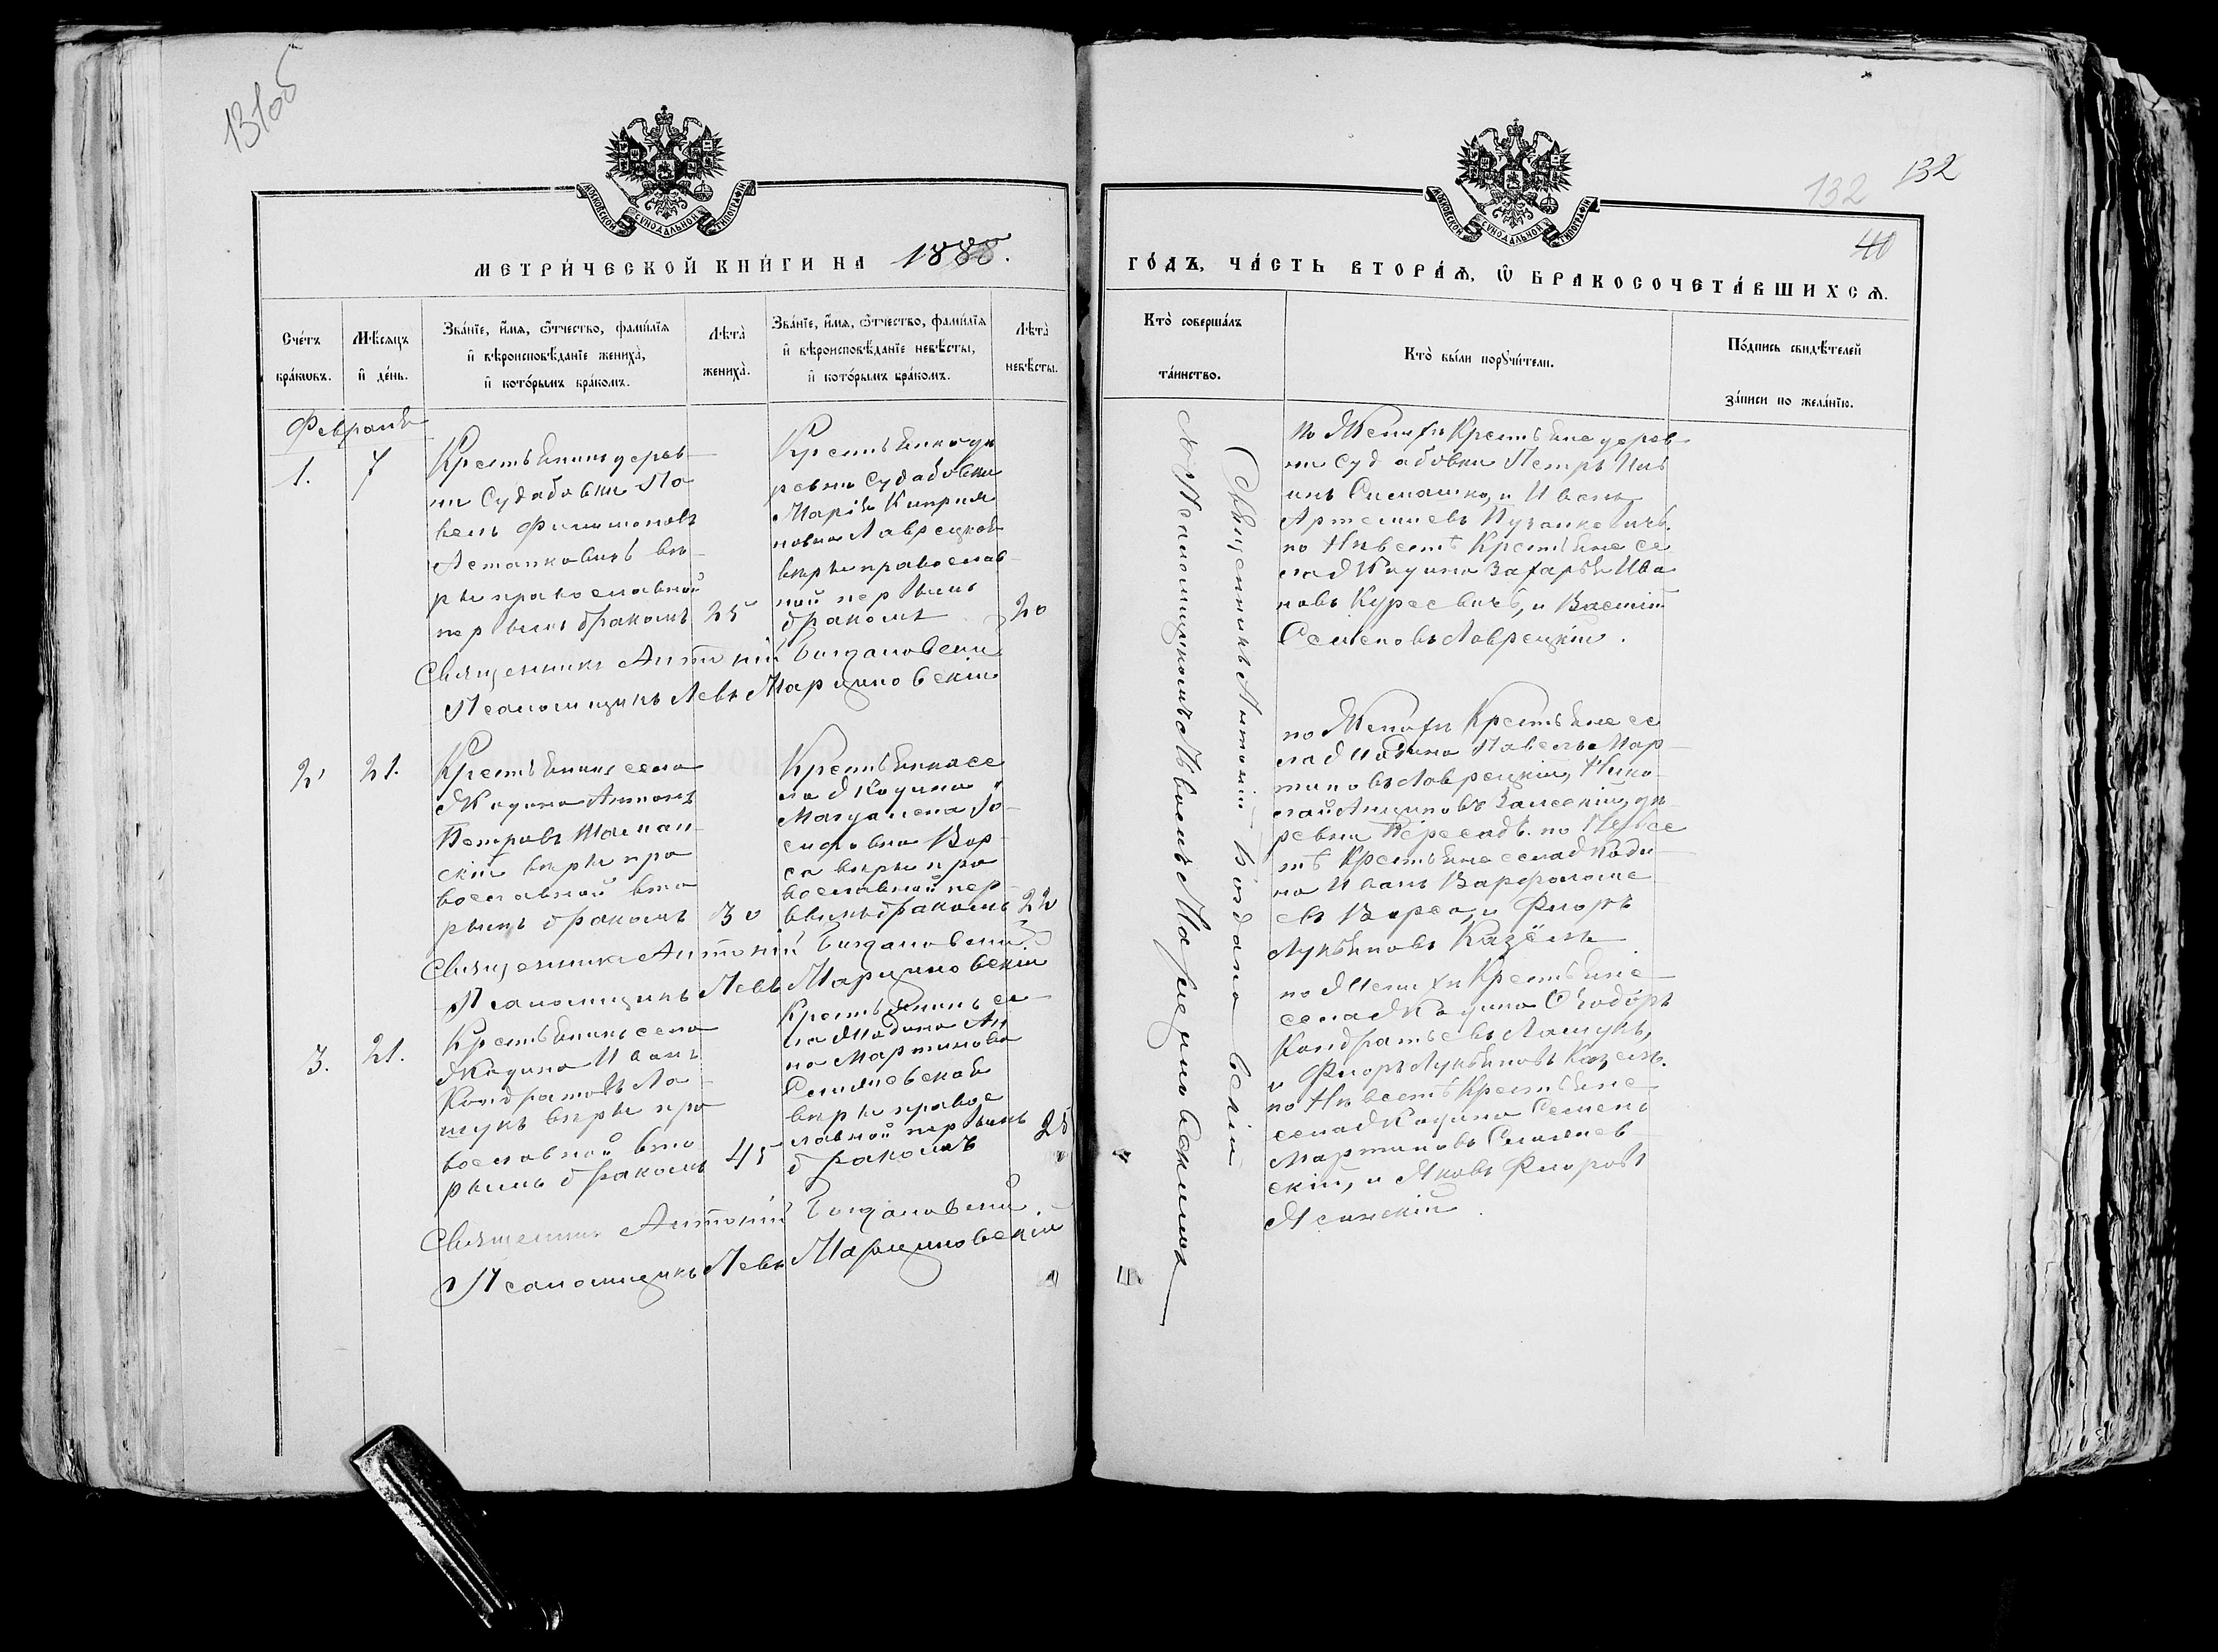 131об
МОСКОВСКОЙ СѴНОДАЛЬНОЙ ТИПОГРАФІИ
МЕТРИ́ЧЕСКОЙ КНИ́ГИ НА 1888.
Сче́тъ бра́кωвъ.
Мѣ́сяцъ и҆ де́нь.
Зва́нїе, и҆́мѧ, ѻ҆́тчество, фами́лїѧ
и҆ вѣроисповѣ́данїе жениха̀,
и҆ кото́рымъ бра́комъ.
Лѣта̀ жениха̀.
Зва́нїе, и҆́мѧ, ѻ҆́тчество, фами́лїѧ
и҆ вѣроисповѣ́данїе невѣ́сты,
и҆ кото́рымъ бра́комъ.
Лѣта̀ невѣ́сты.
Февраль
1.
7
Крестьянинъ дерев-
ни Судабовки Па
велъ Филимоновъ
Астапковичъ вѣ-
ры православной
первымъ бракомъ
25
Крестьянка де
ревни Судабовки
Марія Кипрія
новна Лаврецкая
вѣры православ-
ной первымъ
бракомъ
20
Священникъ Антоній Богдановскій
Псаломщикъ Левъ Марциновскій
2
21.
Крестьянинъ села
Жадина Антонъ
Петровъ Шаман-
скій вѣры пра
вославной вто
рымъ бракомъ
30
Крестьянка се
ла Жадина
Магдалена Іо-
сифовна Вор-
са вѣры пра
вославной пер-
вымъ бракомъ
22
Священникъ Антоній Богдановскій
Псаломщикъ Левъ Марциновскій
3.
21.
Крестьянинъ села
Жадина Иванъ
Кондратовъ Ла-
шукъ вѣры пра
вославной вто
рымъ бракомъ
45
Крестьянинъ се
ла Жадина Ан
на Мартинова
вѣры правос
лавной первымъ
бракомъ
25
Священникъ Антоній Богдановскій.
Псаломщикъ Левъ Марциновскій
132
132
40
МОСКОВСКОЙ СѴНОДАЛЬНОЙ ТИПОГРАФІИ
ГО́ДЪ, ЧА́СТЬ ВТОРА́Ѧ, Ѽ БРАКОСОЧЕТА́ВШИХСѦ.
Кто̀ соверша́лъ та́инство.
Кто̀ бы́ли порꙋчи́тели.
По́дпись свидѣ́телей за́писи по жела́нїю.
Священникъ Антоній Богдановскій
съ Псаломщикомъ Львомъ Марциновскимъ
по Женихѣ Крестьяне дерев-
ни Судабовки Петръ
Симашко, и Иванъ
Артемиевъ
по Невестѣ Крестьяне се
ла Жадина Захарія Ива
новъ Куресвичъ, и Василій
Семеновъ Лаврецкій.
по Женихѣ Крестьяне се
ла Жадина Павелъ Мар-
тиновъ Лаврецкій, Нико-
лай
ревни по Невес
тѣ Крестьяне села Жади-
на Иванъ Варфоломе
евъ Ворса, и Флоръ
Лукьяновъ Казёлъ
по Женихѣ Крестьяне
села Жадина Ѳеодоръ
Кондратьевъ Лашукъ,
и Флоръ Лукьяновъ Казелъ.
по Невестѣ Крестьяне
села Жадина Семенъ
Мартиновъ
скій, и Яковъ Флоровъ